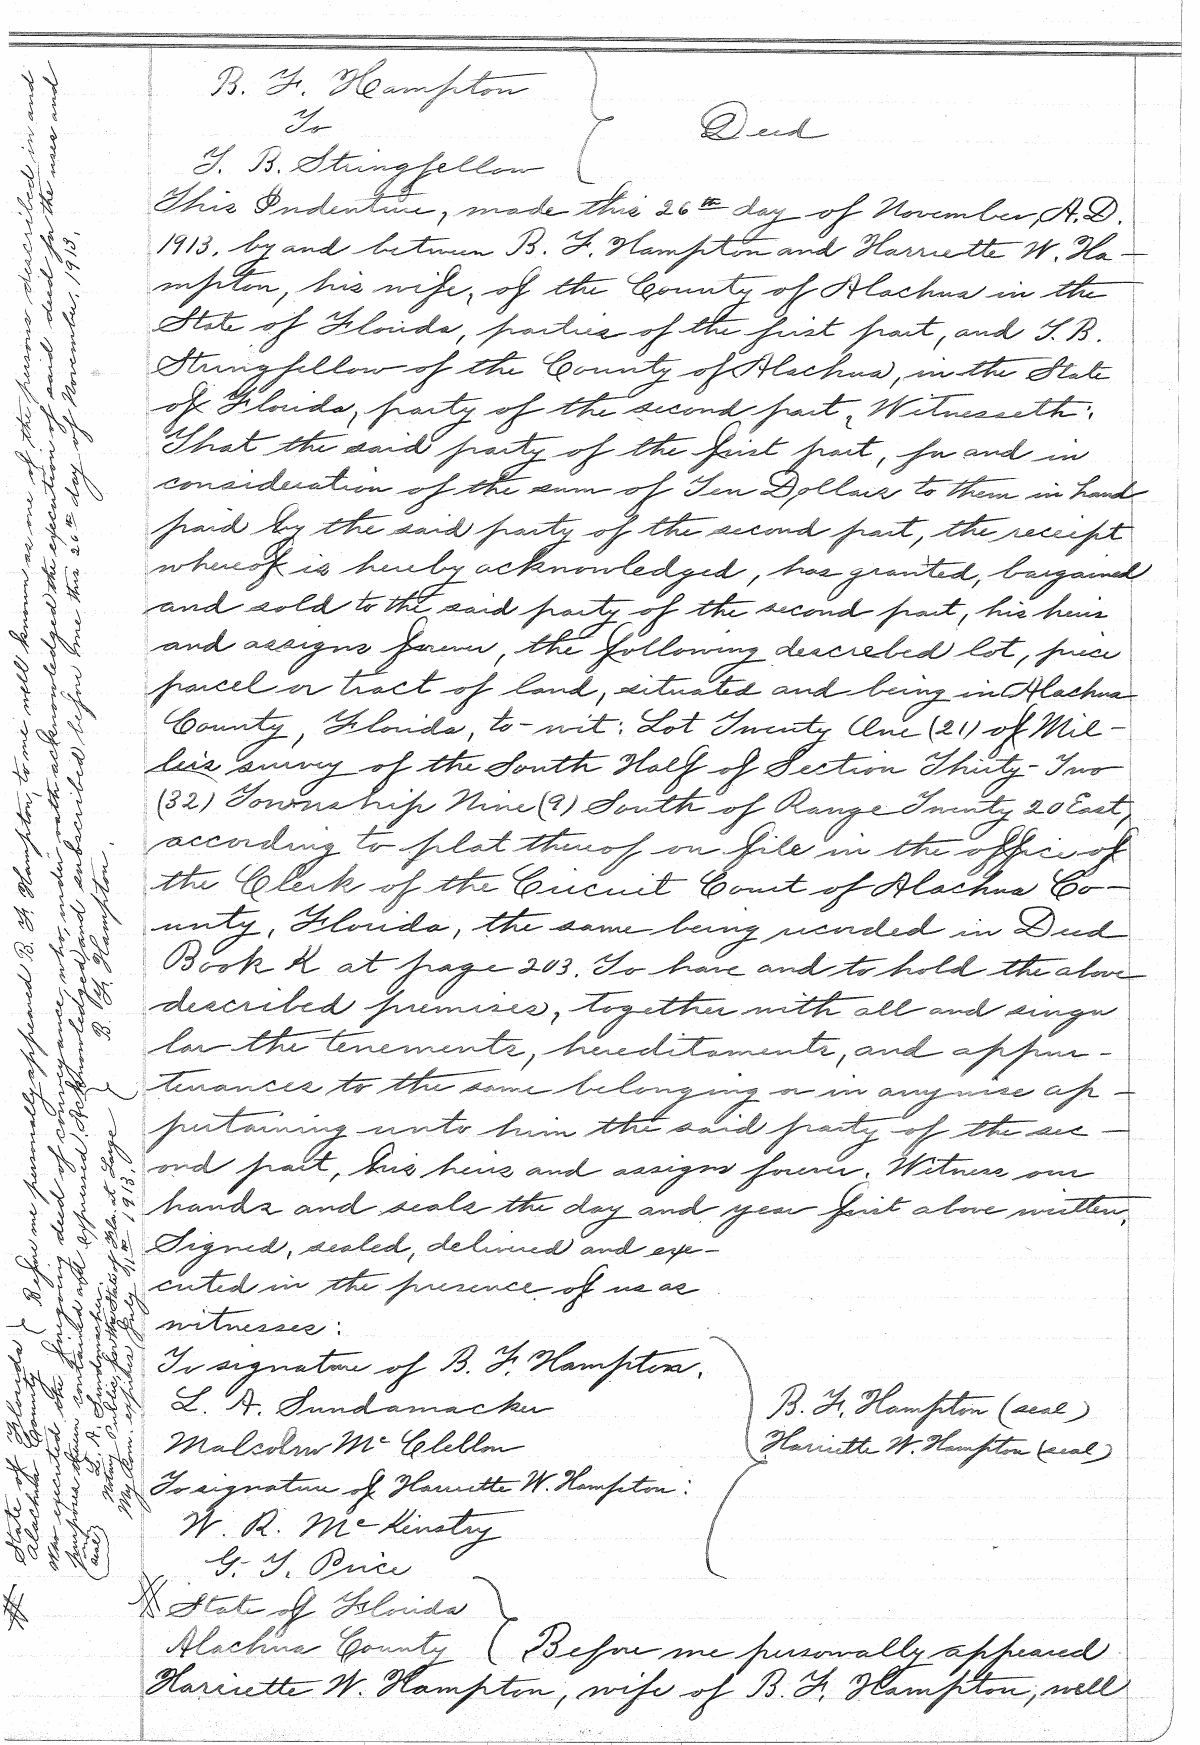 B. F. Hampton
To
T. B. Stringfellow
Deed
This Indenture, made this 26th day of November, A.D.
1913, by and between B. F. Hampton and Harriette W. Ha-
mpton, his wife, of the County of Alachua in the
State of Florida, parties of the first part, and T. B.
Stringfellow of the County of Alachua, in the State
of Florida, party of the second part, Witnesseth:
That the said party of the first part, for and in
consideration of the sum of Ten Dollars to them in hand
paid by the said party of the second part, the receipt
whereof is hereby acknowledged, has granted, bargained
and sold to the said party of the second part, his heirs
and assigns forever, the following described lot, piece
parcel or tract of land, situated and being in Alachua
County, Florida, to-wit: Lot Twenty One (21) of Mil-
ler's survey of the South Half of Section Thirty-Two
(32) Township Nine (9) South of Range Twenty 20 East,
according to plat thereof on file in the office of
the Clerk of the Circuit Court of Alachua Co-
unty, Florida, the same being recorded in Deed
Book K at page 203. To have and to hold the above
described premises, together with all and singu
lar the tenements, hereditaments, and appur-
tenances to the same belonging or in anywise ap-
pertaining unto him the said party of the sec-
ond part, his heirs and assigns forever. Witness our
hands and seals the day and year first above written,
Signed, sealed, delivered and exe-
cuted in the presence of us as
witnesses:
To signature of B. F. Hampton.
L. A. Sundamacker
Malcolm Mc Clellan
To signature of Harriette W. Hampton:
W. R. Mc Kinstry
G. T. Price
B. F. Hampton (seal)
Harriette W. Hampton (seal)
# State of Florida
Alachua County
Before me personally appeared
Harriette W. Hampton, wife of B. F. Hampton, well
# State of Florida
Alachua County
Before me personally appeared B. F. Hampton, to me well known as one of the persons described in and
who executed the foregoing deed of conveyance, who, under oath acknowledged the execution of said deed for the uses and
purposes therein contained and expressed. Acknowledged and subscribed before me this 26th day of November, 1913.
B. F. Hampton.
L. A. Sundamacker.
Notary Public for the State of Fla. at Large
My Com. expires July 1913.
(seal)